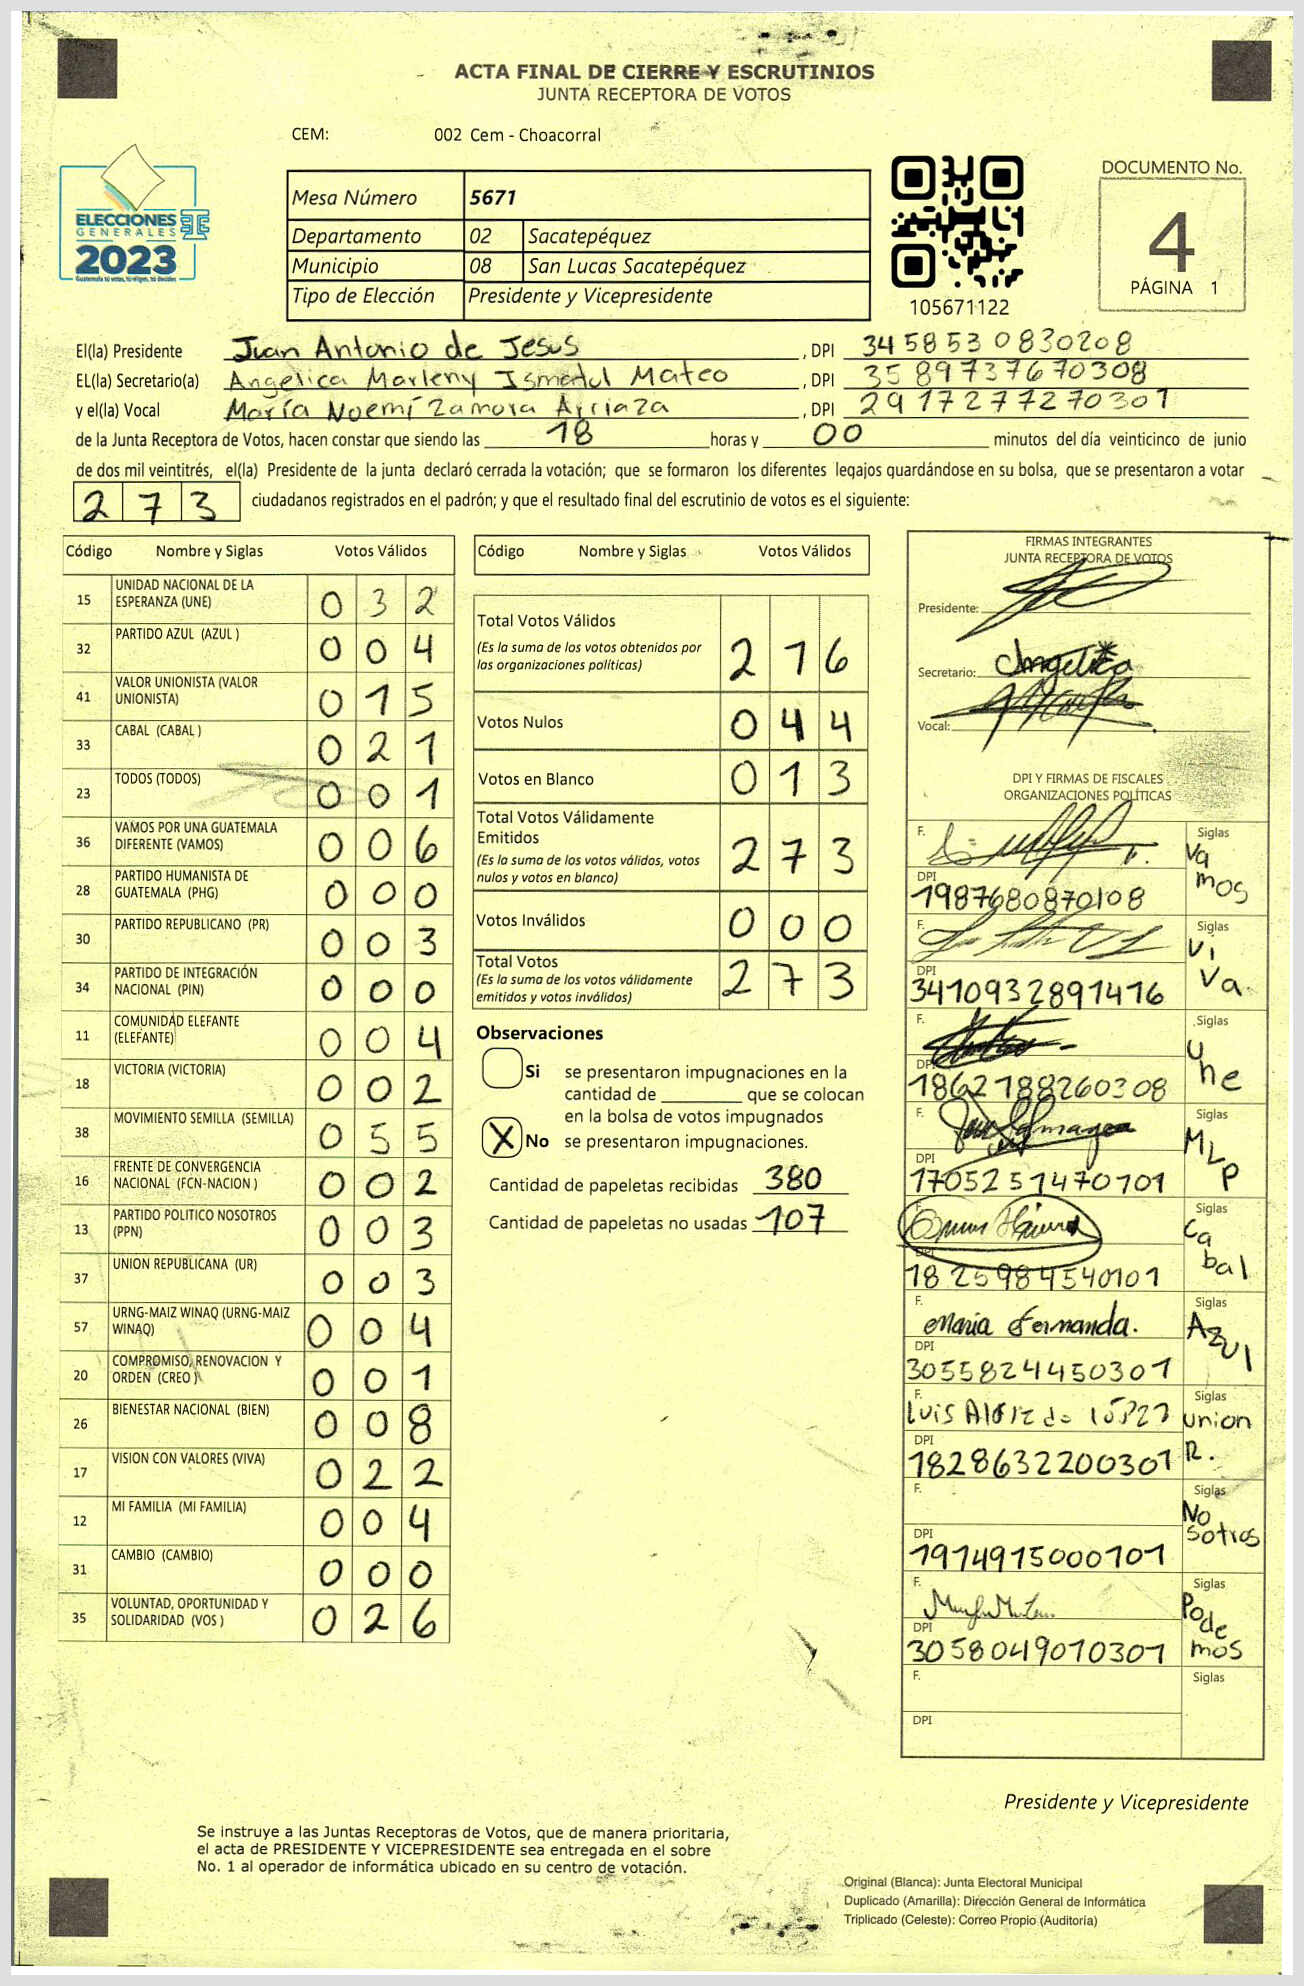 ACTA FINAL DE CIERRE Y ESCRUTINIOS
JUNTA RECEPTORA DE VOTOS
CEM: 002 Cem - Choacorral
ELECCIONES
GENERALES
2023
Guatemala tú votas, tú eliges, tú decides
Mesa Número 5671
Departamento 02 Sacatepéquez
Municipio 08 San Lucas Sacatepéquez
Tipo de Elección Presidente y Vicepresidente
105671122
DOCUMENTO No.
4
PÁGINA 1
El(la) Presidente Juan Antonio de Jesus , DPI 3458530830208
EL(la) Secretario(a) Angelica Marleny Ismatul Mateo , DPI 3589737670308
y el(la) Vocal María Noemí Zamora Arriaza , DPI 2917277270301
de la Junta Receptora de Votos, hacen constar que siendo las 18 horas y 00 minutos del día veinticinco de junio
de dos mil veintitrés, el(la) Presidente de la junta declaró cerrada la votación; que se formaron los diferentes legajos guardándose en su bolsa, que se presentaron a votar
273 ciudadanos registrados en el padrón; y que el resultado final del escrutinio de votos es el siguiente:
Código Nombre y Siglas Votos Válidos
15 UNIDAD NACIONAL DE LA ESPERANZA (UNE) 032
32 PARTIDO AZUL (AZUL ) 004
41 VALOR UNIONISTA (VALOR UNIONISTA) 015
33 CABAL (CABAL ) 021
23 TODOS (TODOS) 001
36 VAMOS POR UNA GUATEMALA DIFERENTE (VAMOS) 006
28 PARTIDO HUMANISTA DE GUATEMALA (PHG) 000
30 PARTIDO REPUBLICANO (PR) 003
34 PARTIDO DE INTEGRACIÓN NACIONAL (PIN) 000
11 COMUNIDAD ELEFANTE (ELEFANTE) 004
18 VICTORIA (VICTORIA) 002
38 MOVIMIENTO SEMILLA (SEMILLA) 055
16 FRENTE DE CONVERGENCIA NACIONAL (FCN-NACION ) 002
13 PARTIDO POLITICO NOSOTROS (PPN) 003
37 UNION REPUBLICANA (UR) 003
57 URNG-MAIZ WINAQ (URNG-MAIZ WINAQ) 004
20 COMPROMISO, RENOVACION Y ORDEN (CREO ) 001
26 BIENESTAR NACIONAL (BIEN) 008
17 VISION CON VALORES (VIVA) 022
12 MI FAMILIA (MI FAMILIA) 004
31 CAMBIO (CAMBIO) 000
35 VOLUNTAD, OPORTUNIDAD Y SOLIDARIDAD (VOS ) 026
Código Nombre y Siglas Votos Válidos
Total Votos Válidos
(Es la suma de los votos obtenidos por
las organizaciones políticas) 216
Votos Nulos 044
Votos en Blanco 013
Total Votos Válidamente
Emitidos
(Es la suma de los votos válidos, votos
nulos y votos en blanco) 273
Votos Inválidos 000
Total Votos
(Es la suma de los votos válidamente
emitidos y votos inválidos) 273
Observaciones
Si se presentaron impugnaciones en la
cantidad de ________ que se colocan
en la bolsa de votos impugnados
X No se presentaron impugnaciones.
Cantidad de papeletas recibidas 380
Cantidad de papeletas no usadas 107
FIRMAS INTEGRANTES
JUNTA RECEPTORA DE VOTOS
Presidente:
Secretario: Angelica
Vocal:
DPI Y FIRMAS DE FISCALES
ORGANIZACIONES POLÍTICAS
F. Siglas Vamos
DPI 1987680870108
F. Siglas Viva.
DPI 3410932891416
F. Siglas Une
DPI 1862188260308
F. Siglas MLP
DPI 1705251470101
F. Siglas Cabal
DPI 1825984540101
F. Maria Fernanda. Siglas Azul
DPI 3055824450301
F. Siglas union R.
DPI 1828632200301
F. Siglas Nosotros
DPI 1914915000101
F. Siglas Podemos
DPI 3058049010301
F. Siglas
DPI
Presidente y Vicepresidente
Se instruye a las Juntas Receptoras de Votos, que de manera prioritaria,
el acta de PRESIDENTE Y VICEPRESIDENTE sea entregada en el sobre
No. 1 al operador de informática ubicado en su centro de votación.
Original (Blanca): Junta Electoral Municipal
Duplicado (Amarilla): Dirección General de Informática
Triplicado (Celeste): Correo Propio (Auditoría)